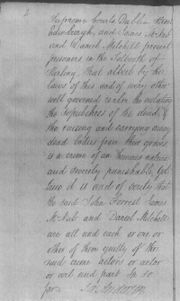 2
Supreme Courts Dublin Street
Edinburgh, and James McNab
and Daniel Mitchell present
prisoners in the Tolbooth of
Stirling, That albeit by the
laws of this and of every other
well governed realm the violating
the Sepulchres of the dead &
the raising and carrying away
dead bodies from their graves
is a crime of an heinous nature
and severely punishable, Yet
true it is and of verity that
the said John Forrest James
McNab and Daniel Mitchell
are all and each or one or
other of them guilty of the
said crime actors or actor
or art and part In so
far